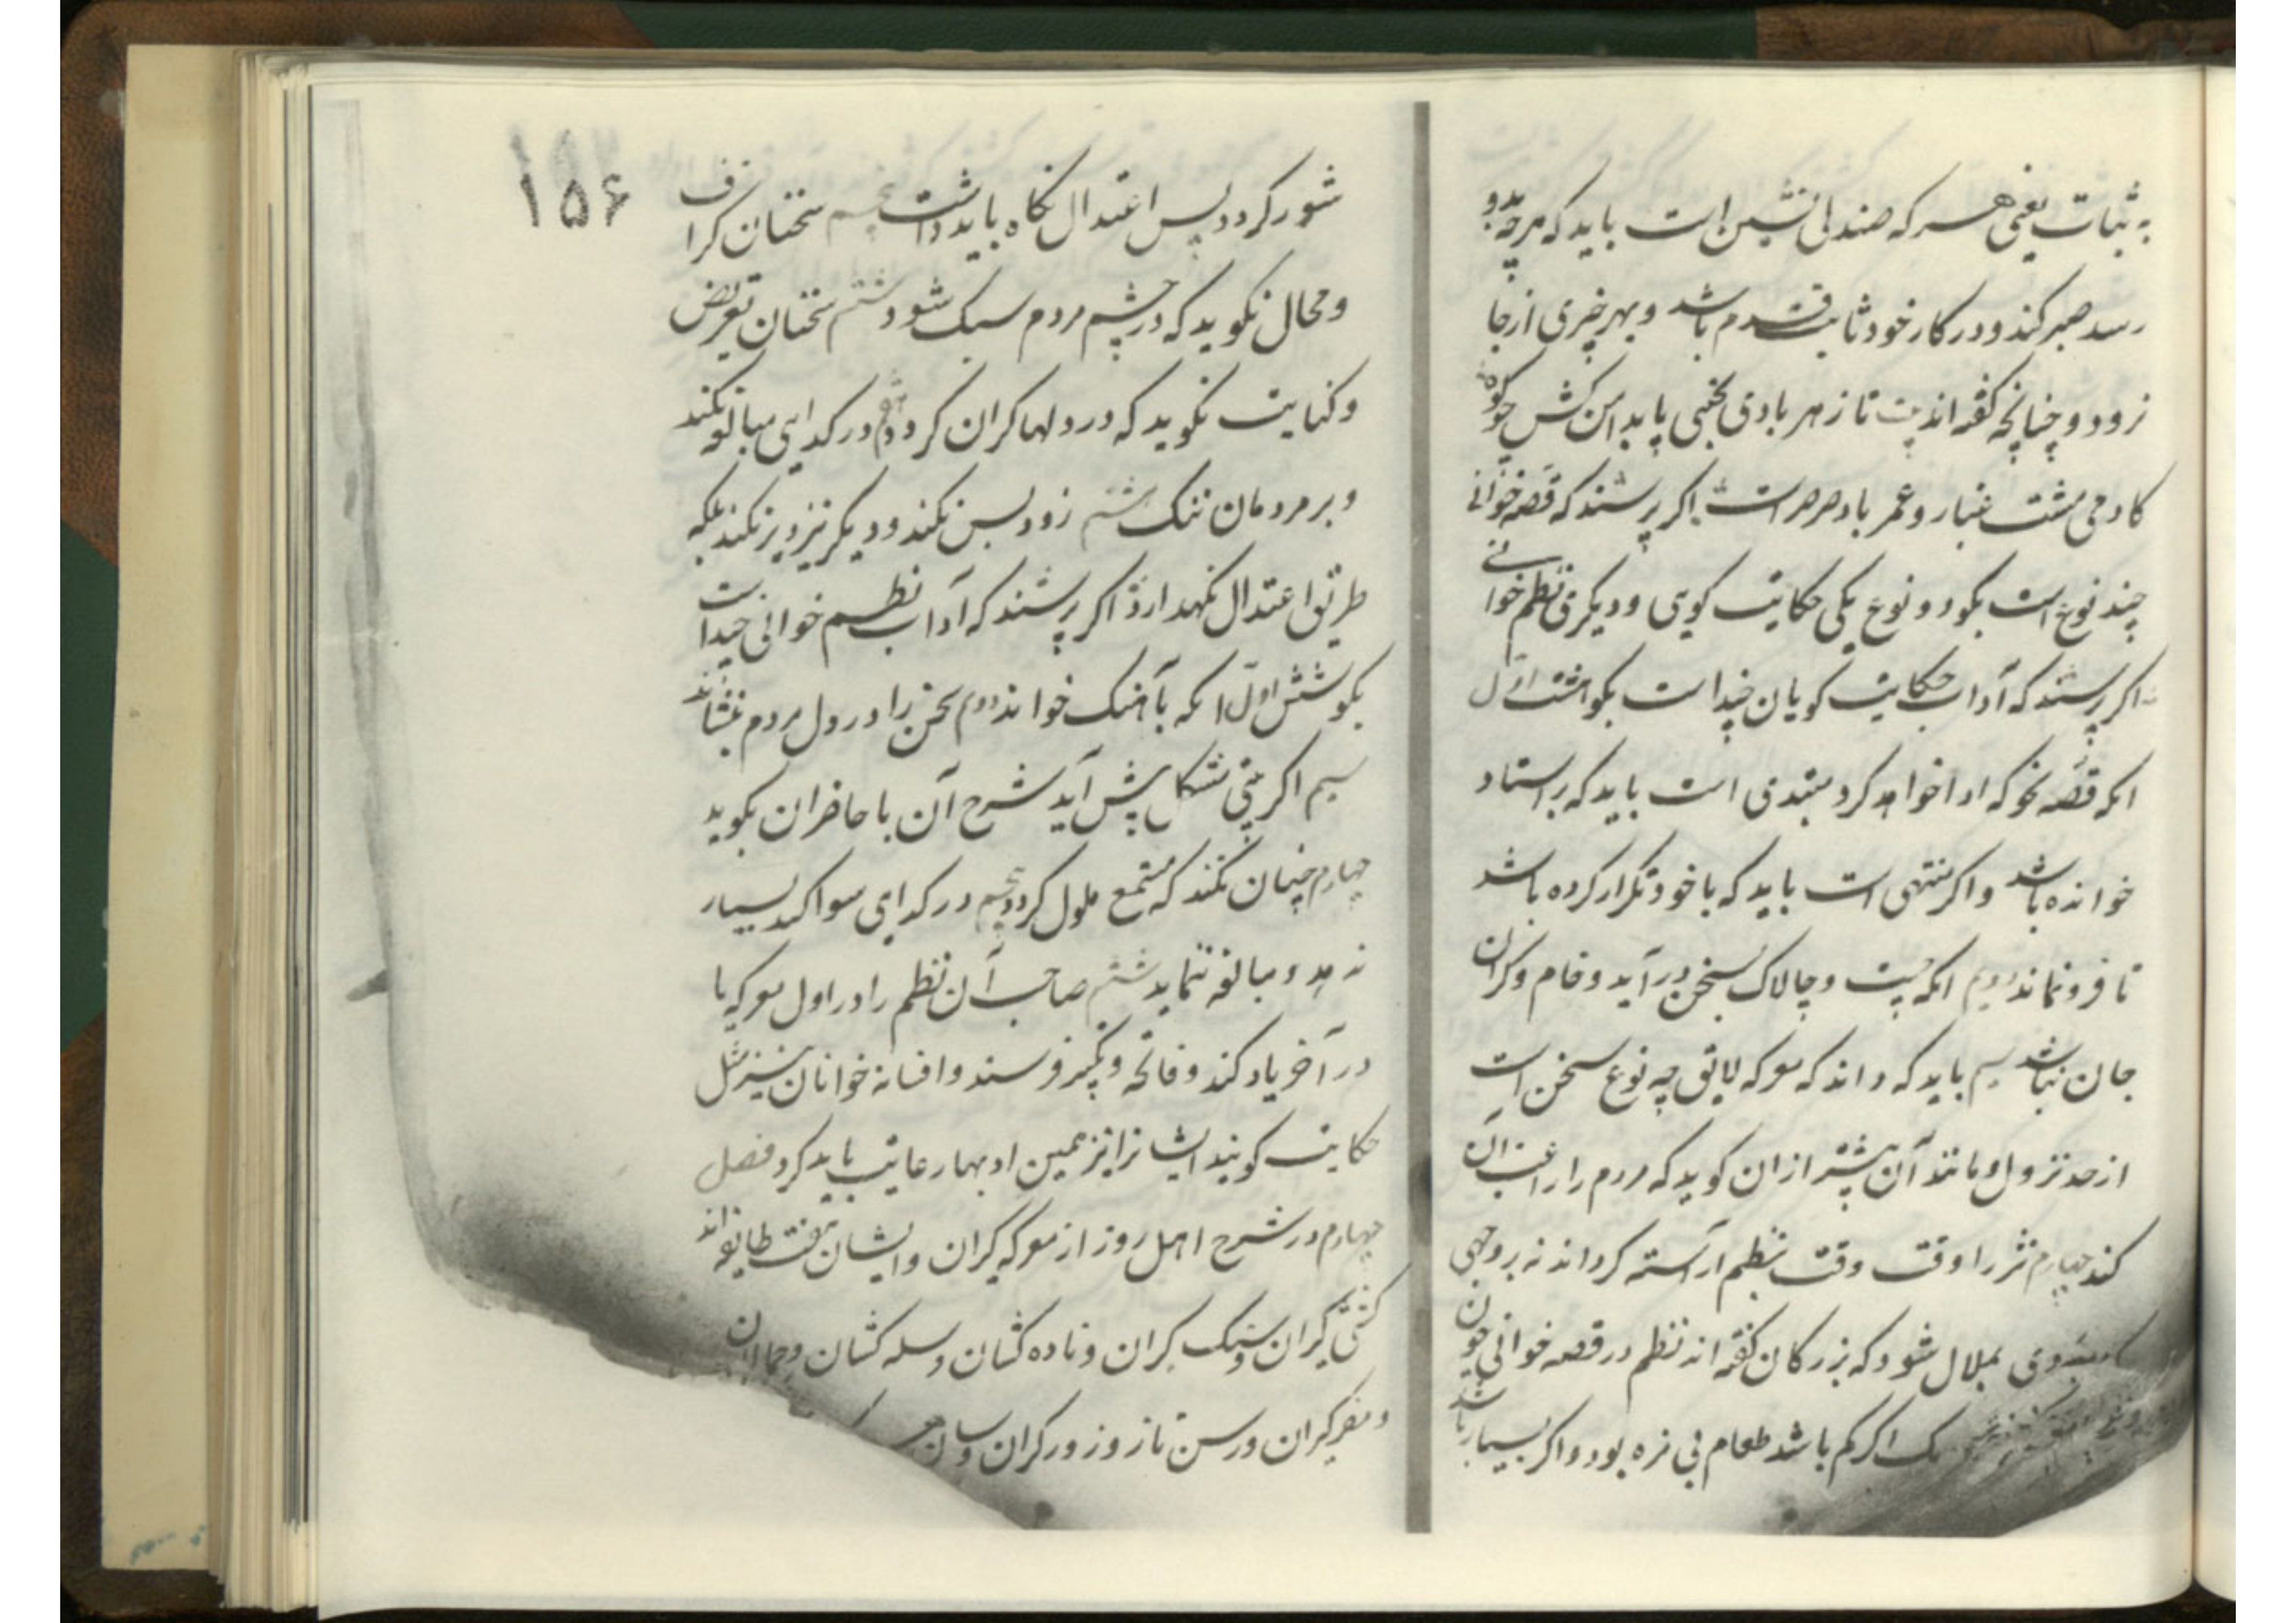 به ثبات یعنی هر که صندلی نشین است باید که هرچه بدو
رسد صبر کند و در کار خود ثابت قدم باشد و بهر چیزی از جا
نرود و چنانچه گفته اند بیت تا ز هر بادی نجنبی پای در دامن کش چو کوه
کادمی مشت غبار و عمر باد صرصر است اگر پرسند که قصه خوانی
چند نوع است بگو دو نوع یکی حکایت گوی و دیگری نظم خوانی
اگر پرسند که آداب حکایت گویان چند است بگو هشت اول
انکه قصه نحو که ادا خواهد کرد مبتدی است باید که بر استاد
خوانده باشد و اگر منتهی است باید که با خود تکرار کرده باشد
تا فرو نماند دویم انکه چست و چالاک بسخن در آید و خام و گران
جان نباشد سیم باید که داند که معرکه لایق چه نوع سخن است
از حد نزول و مانند آن پیشتر از ان گوید که مردم را رغبت آن
کند چهارم نثر را وقت وقت بنظم آراسته گرداند نه بر وجهی
بملال شود که بزرگان گفته اند نظم در قصه خوانی چون
اگر کم باشد طعام بی مزه بود و اگر بسیار باشد
۱۵۶
شور گردد پس اعتدال نگاه باید داشت پنجم سخنان گزاف
و محال نگوید که در چشم مردم سبک شود ششم سخنان تعریض
و کنایت نگوید که در دلها گران گردد هفتم در گدایی مبالغه نکند
و بر مردمان تنگ هشتم زود بس نکند و دیگر نیز دیر نکند بلکه
طریق اعتدال نگهدارد اگر پرسند که آداب نظم خوانی چند است
بگو شش اول انکه بآهنگ خواند دوم سخن را در دل مردم بنشاند
سیم اگر بیتی مشکل پیش آید شرح آن با حاضران بگوید
چهارم چنان نکند که مستمع ملول گردد پنجم در گدایی سوا کند بسیار
ندهد و مبالغه ننماید ششم صاحب آن نظم را در اول معرکه یا
در آخر یاد کند و فاتحه و تکبیر فرستد و افسانه خوانان نیز مثل
حکایت گویند ایشانرا نیز همین ادبها رعایت باید کرد فصل
چهارم در شرح اهل روز از معرکه گیران و ایشان هفت طایفه اند
کشتی گیران و سنگ گیران و ناوه کشان و سله کشان و حمالان
و مغیر گیران و رسن تازو زورگران و